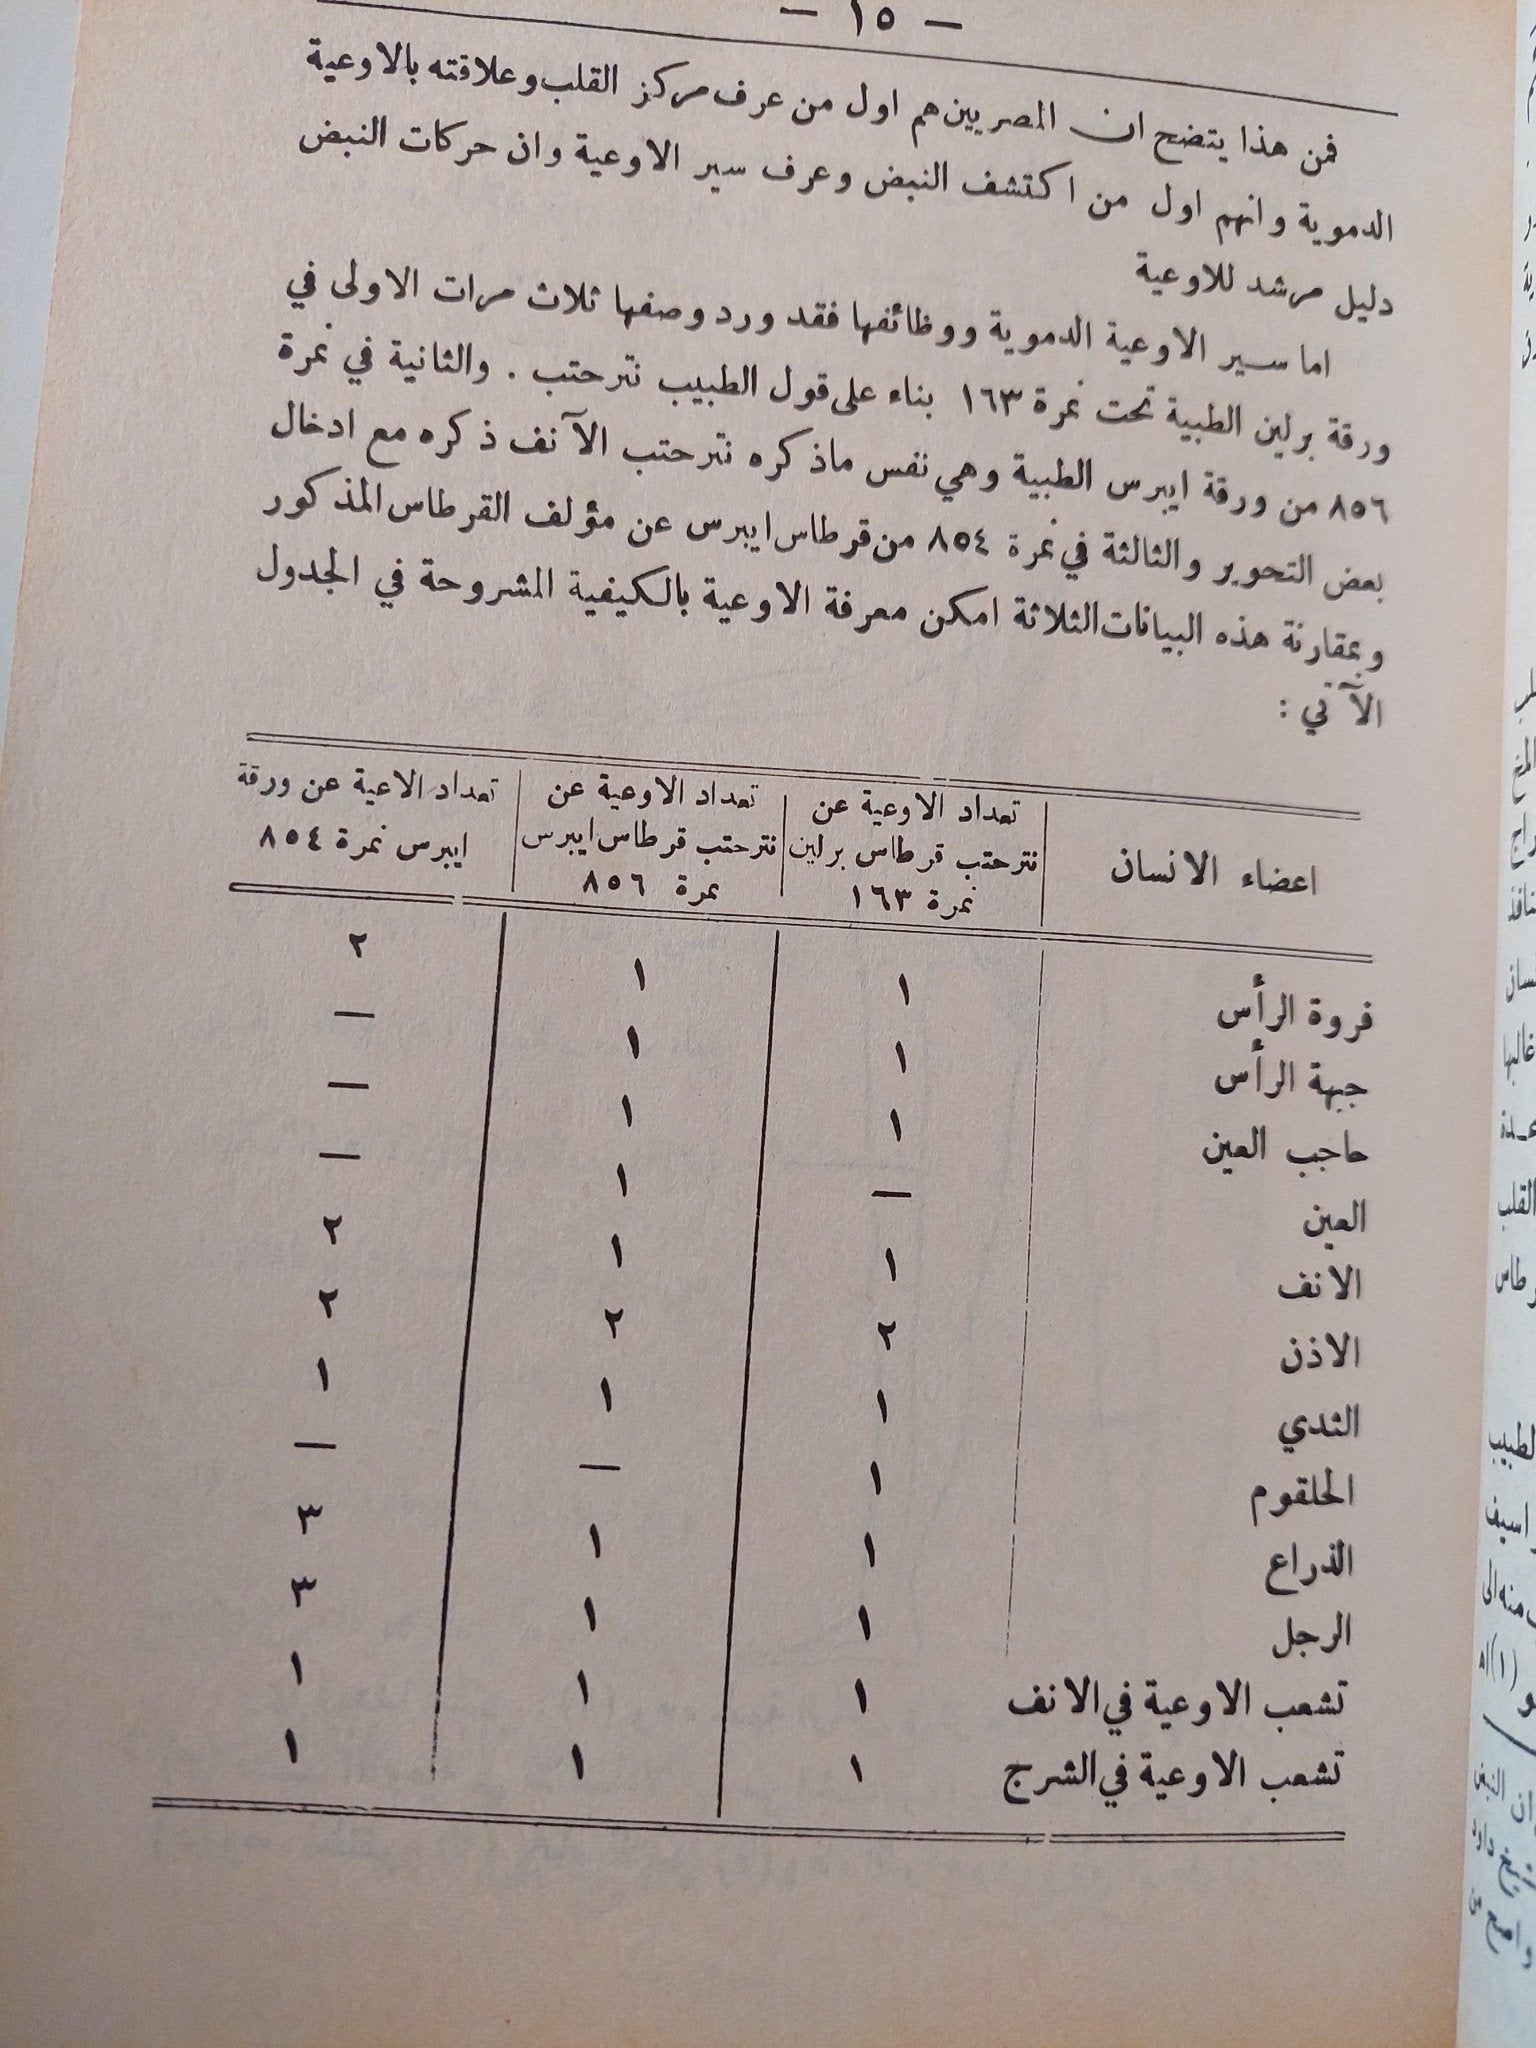 — ١٥ —
فمن هذا يتضح ان المصريين هم اول من عرف مركز القلب وعلاقته بالاوعية
الدموية وانهم اول من اكتشف النبض وعرف سير الاوعية وان حركات النبض
دليل مرشد للاوعية
اما سير الاوعية الدموية ووظائفها فقد ورد وصفها ثلاث مرات الاولى في
ورقة برلين الطبية تحت نمرة ١٦٣ بناء على قول الطبيب نترحتب . والثانية في نمرة
٨٥٦ من ورقة ايبرس الطبية وهي نفس ماذكره نترحتب الآنف ذكره مع ادخال
بعض التحوير والثالثة في نمرة ٨٥٤ من قرطاس ايبرس عن مؤلف القرطاس المذكور
وبمقارنة هذه البيانات الثلاثة امكن معرفة الاوعية بالكيفية المشروحة في الجدول
الآتي :
اعضاء الانسان
تعداد الاوعية عن
نترحتب قرطاس برلين
نمرة ١٦٣
تعداد الاوعية عن
نترحتب قرطاس ايبرس
نمرة ٨٥٦
تعداد الاعية عن ورقة
ايبرس نمرة ٨٥٤
فروة الرأس ١ ١ ٢
جبهة الرأس ١ ١ —
حاجب العين ١ ١ —
العين — ١ —
الانف ١ ١ ٢
الاذن ٢ ٢ ٢
الثدي ١ ١ ١
الحلقوم ١ — —
الذراع ١ ١ ٣
الرجل ١ ١ ٣
تشعب الاوعية في الانف ١ ١ ١
تشعب الاوعية في الشرج ١ ١ ١